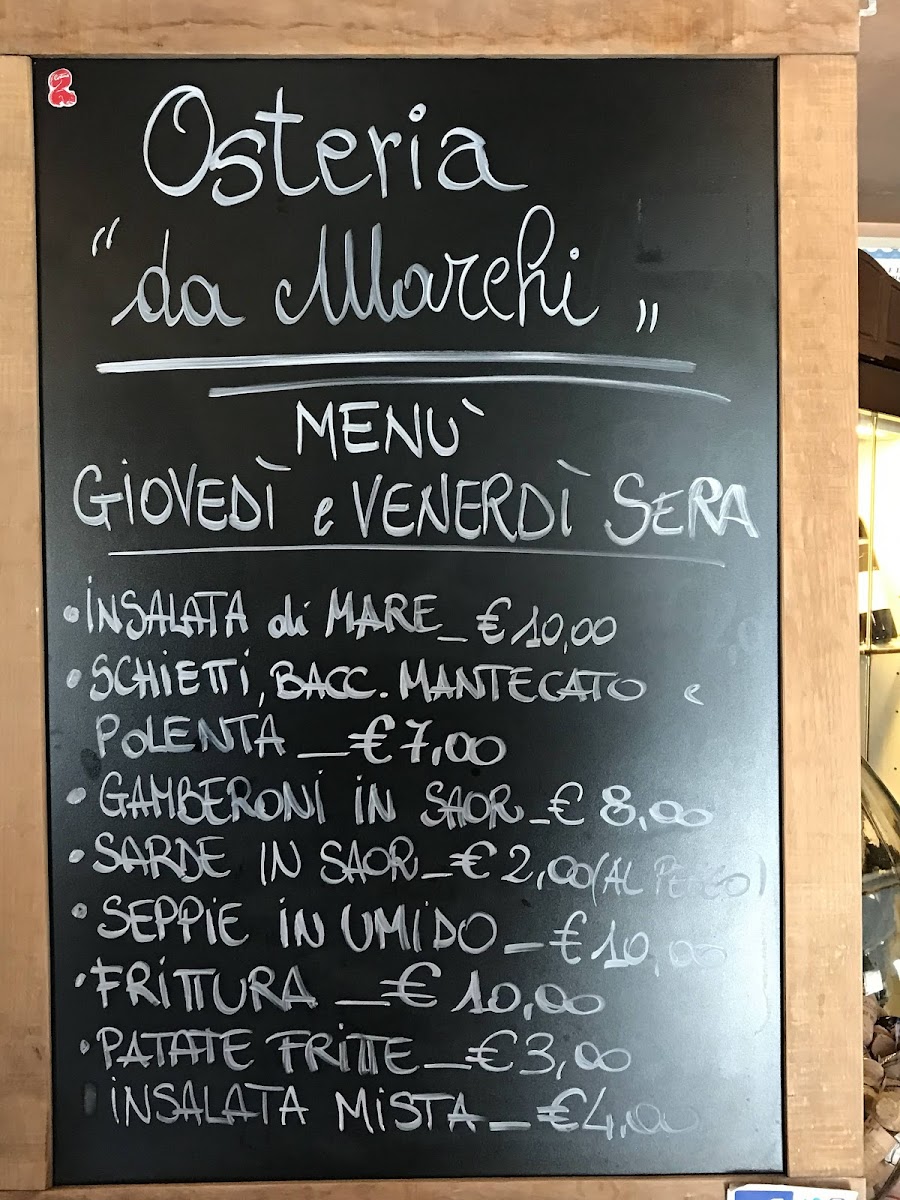 Osteria
"da Marchi"
MENÙ
GIOVEDÌ e VENERDÌ SERA
• INSALATA di MARE_ € 10,00
• SCHIETTI, BACC. MANTECATO e
POLENTA _ € 7,00
• GAMBERONI IN SAOR_€ 8,00
• SARDE IN SAOR_€ 2,00 (AL PEZZO)
• SEPPIE IN UMIDO _ € 10,00
• FRITTURA _ € 10,00
• PATATE FRITTE_€ 3,00
INSALATA MISTA_€ 4,00